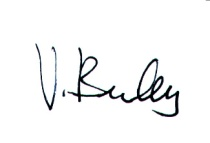 V. Burley